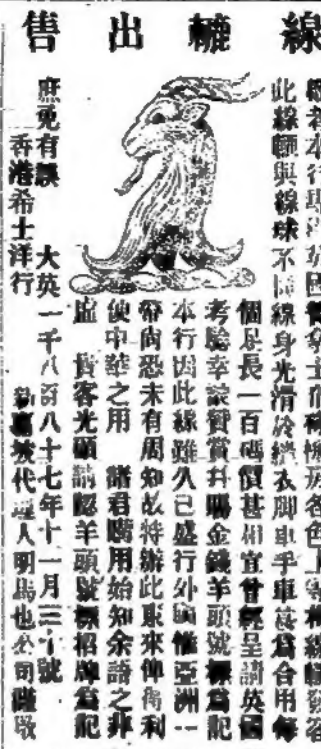 線轆出售
此線轆與線球不同線身光滑於縫衣脚車手車甚為合用每
個足長一百碼價甚相宜曾經呈請英國
考驗幸蒙贊賞并賜金錢羊頭號標為記
本行因此線雖久已盛行外國惟亞洲一
帶尚恐未有周知故特辦此來俾得利
便中華之用 諸君購用始知余語之非
虛 貴客光顧請認羊頭號標招牌為記
庶免有誤 大英一千八百八十七年十一月三十號
香港希士洋行 代理人明馬也公司謹啟